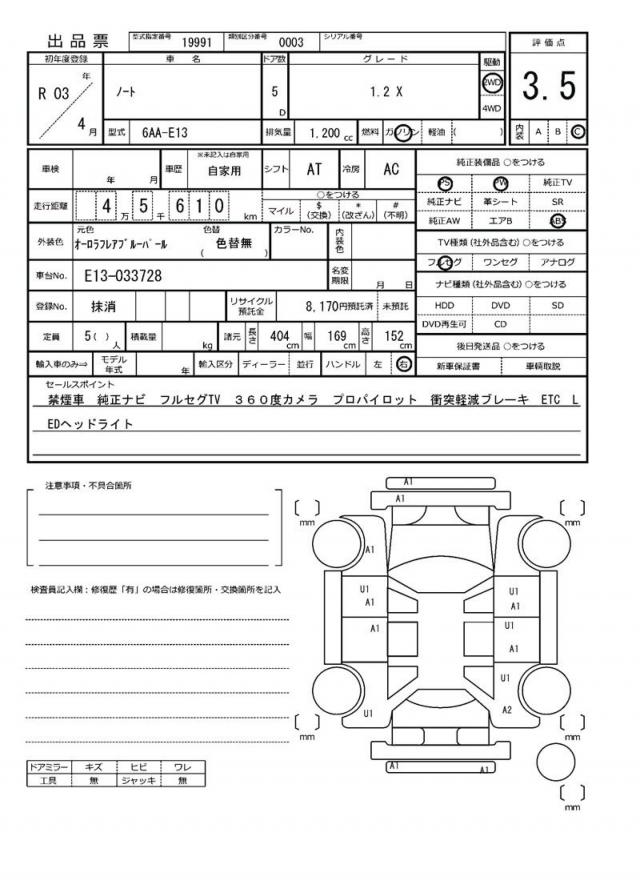 出品票 型式指定番号 19991 類別区分番号 0003 シリアル番号
評価点
3.5
内装 A B C
初年度登録 車名 ドア数 グレード 駆動
R 03 年 4 月
ノート
5 D
1.2 X
2WD
4WD
型式 6AA-E13 排気量 1.200 cc 燃料 ガソリン 軽油 ( )
車検 年 月 車歴 ※未記入は自家用 自家用 シフト AT 冷房 AC
走行距離 4 万 5 千 6 1 0 km
○をつける
マイル $ (交換) * (改ざん) # (不明)
外装色 元色 色替 カラーNo. 内装色
オーロラフレアブルーパール ( 色替無 )
車台No. E13-033728 名変期限 月 日
登録No. 抹消 リサイクル預託金 8,170円預託済 未預託
定員 5( ) 人 積載量 kg 諸元 長さ 404 cm 幅 169 cm 高さ 152 cm
輸入車のみ⇒ モデル年式 年 輸入区分 ディーラー 並行 ハンドル 左 右
純正装備品 ○をつける
PS PW 純正TV
純正ナビ 革シート SR
純正AW エアB ABS
TV種類 (社外品含む) ○をつける
フルセグ ワンセグ アナログ
ナビ種類 (社外品含む) ○をつける
HDD DVD SD
DVD再生可 CD
後日発送品 ○をつける
新車保証書 車輌取説
セールスポイント
禁煙車 純正ナビ フルセグTV 360度カメラ プロパイロット 衝突軽減ブレーキ ETC L
EDヘッドライト
注意事項・不具合箇所
検査員記入欄：修復歴「有」の場合は修復箇所・交換箇所を記入
ドアミラー キズ ヒビ ワレ
工具 無 ジャッキ 無
A1
A1
[ ] mm [ ] mm
A1
U1 U1
A1 A1
A1 U1
A1
U1
U1 A2
[ ] mm [ ] mm
A1 A1
[ ] mm